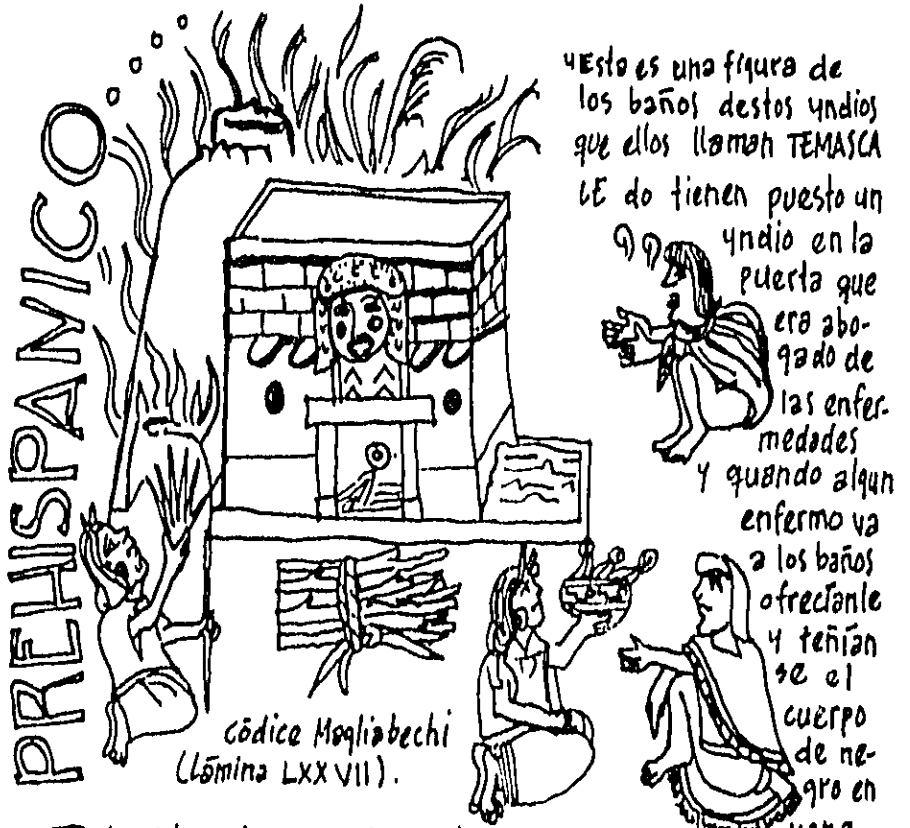 PREHISPANICO
yEsto es una figura de
los baños destos yndios
que ellos llaman TEMASCA
LE do tienen puesto un
yndio en la
puerta que
era abo-
gado de
las enfer-
medades
y quando algun
enfermo va
a los baños
ofrecíanle
y teñían
se el
cuerpo
de ne-
gro en
códice Magliabechi
(Lámina LXXVII).